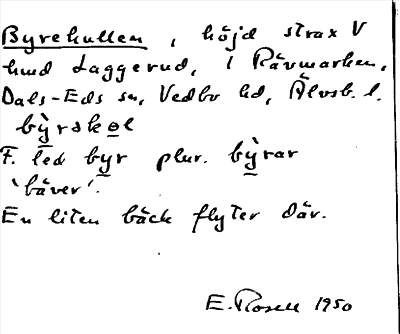 Byrekullen, höjd strax V
hmd Laggerud, i Rävmarken,
Dals-Eds sn, Vedbo hd, Älvsb. l.
by̆rskəl
F. led byr plur. by̆rar
'bäver'.
En liten bäck flyter där.
E. Rosell 1950